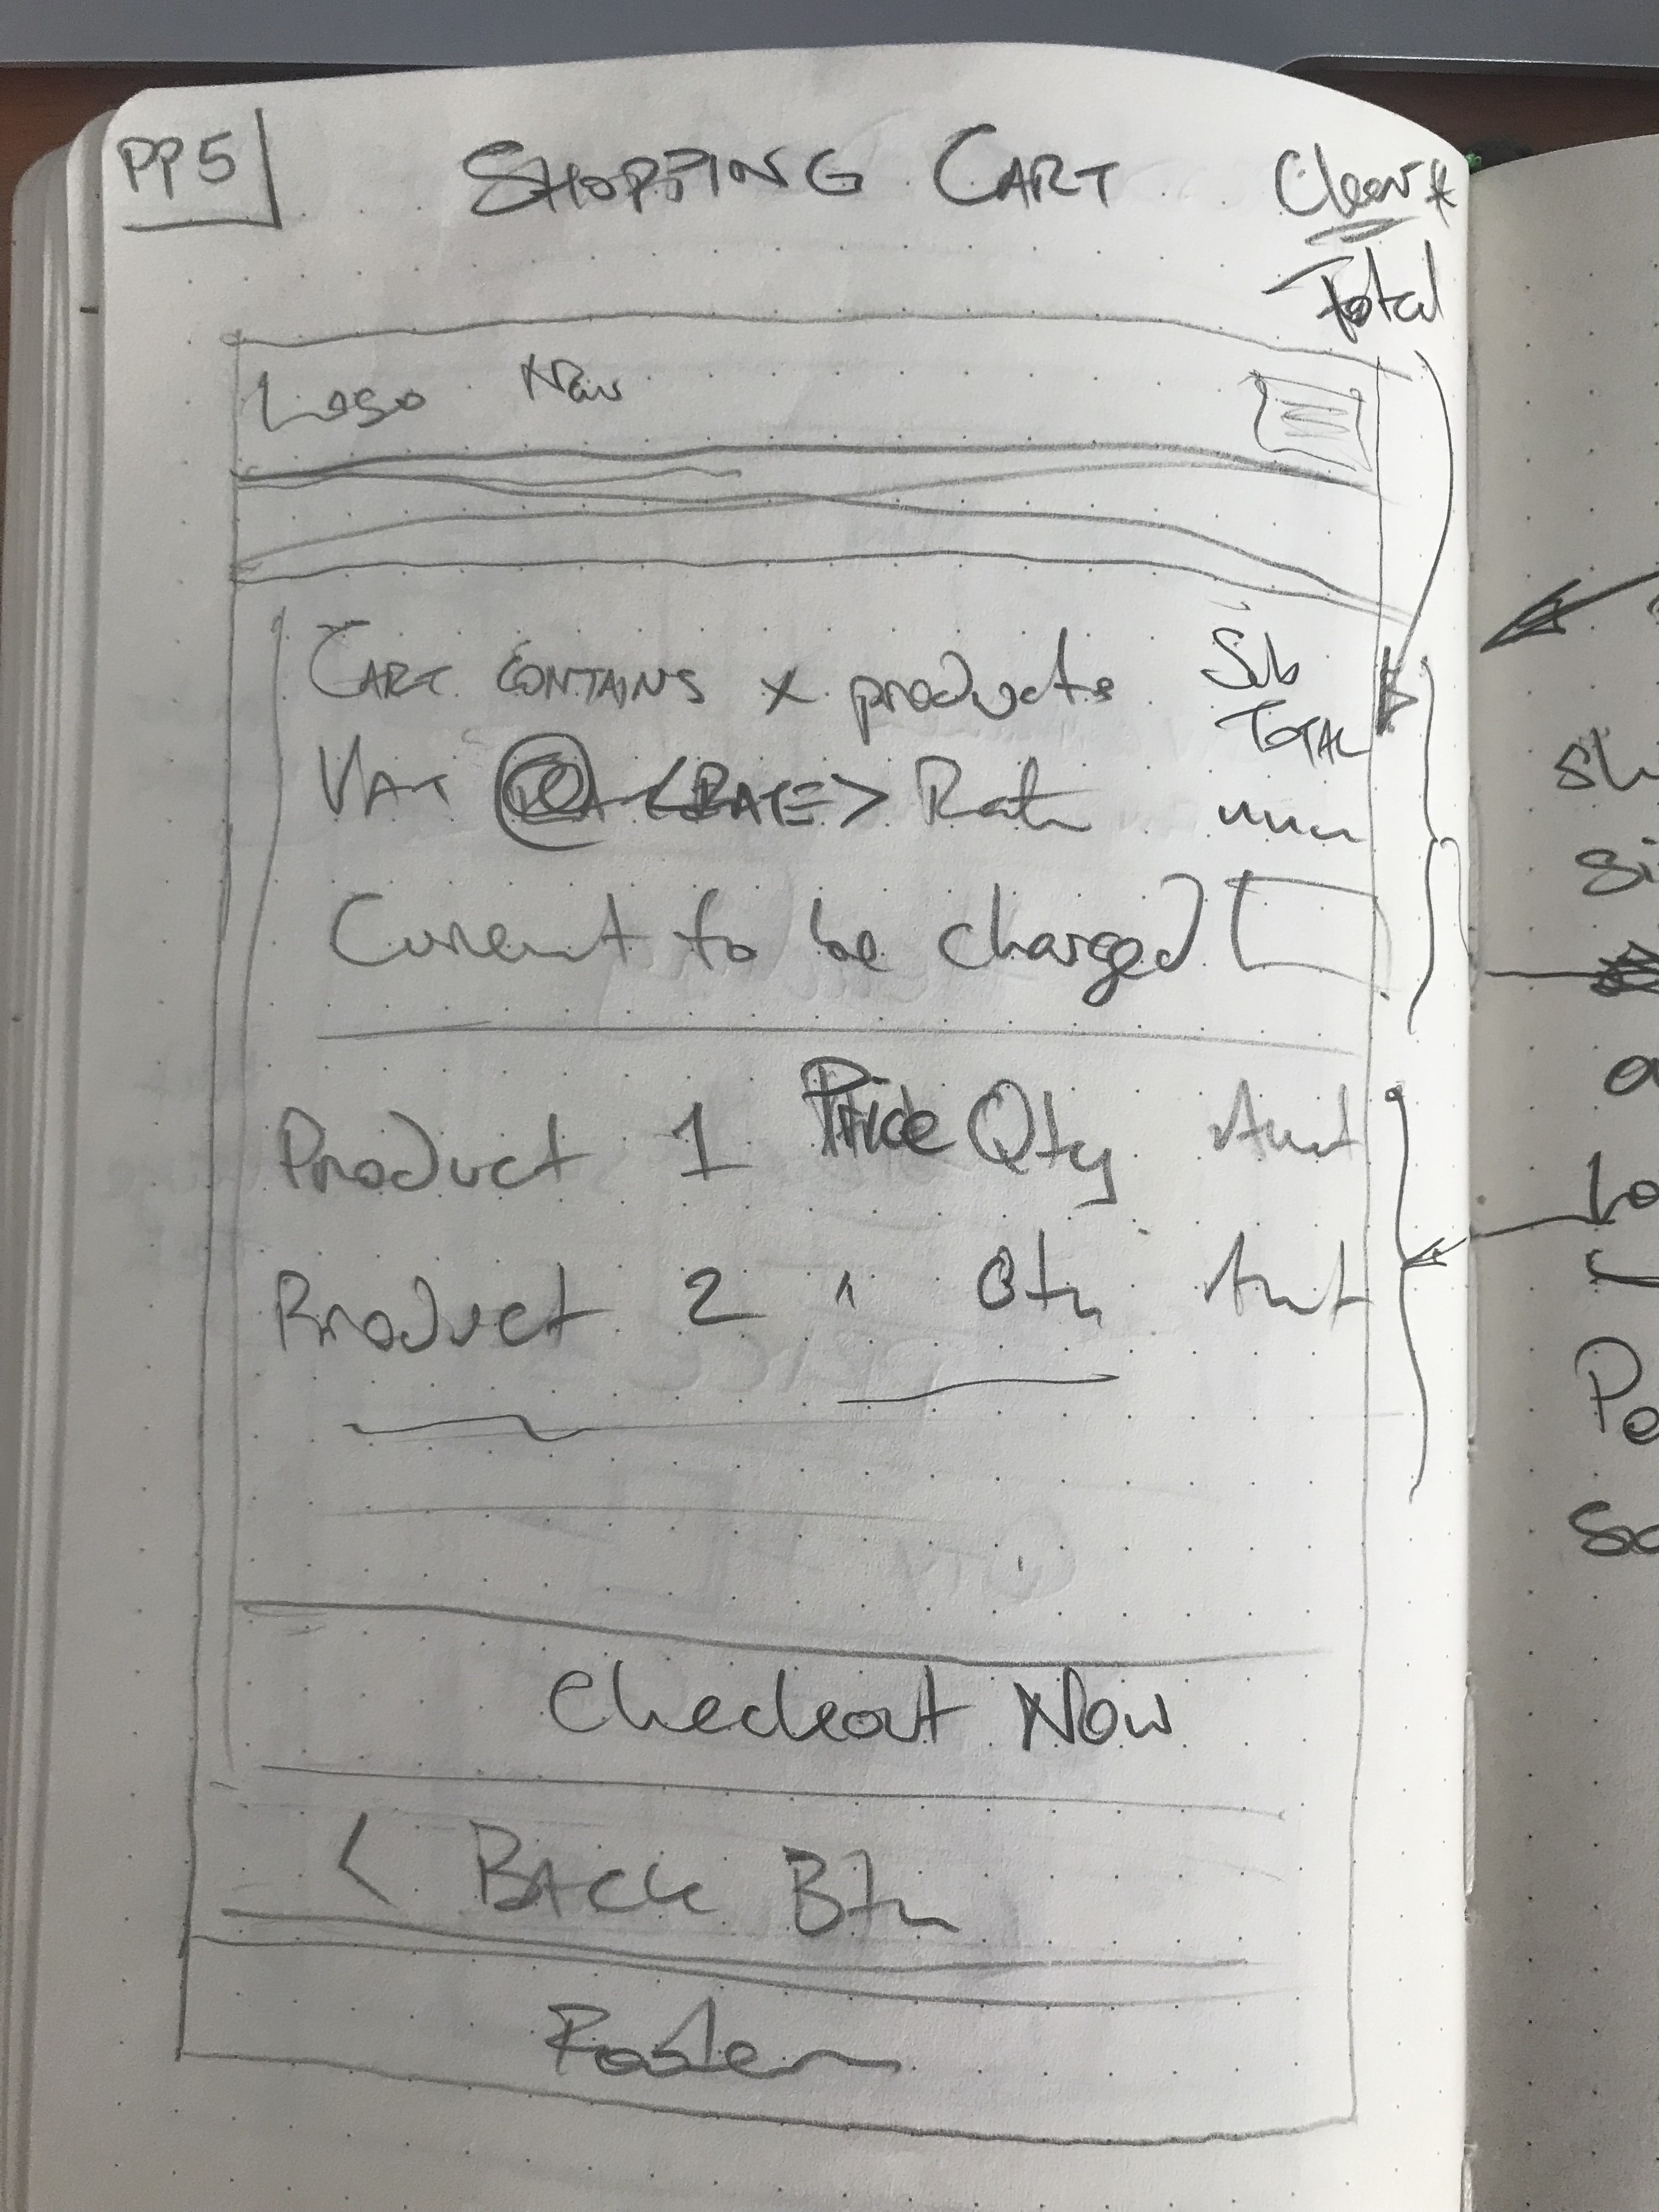 PP5 SHOPPING CART Clear &
Total
Logo Nav
CART CONTAINS x products Sub
TOTAL
VAT @ <RATE> Rate
Current to be charged
Product 1 Price Qty Amt
Product 2 " Qty Amt
Checkout Now
< BACK Btn
Footer